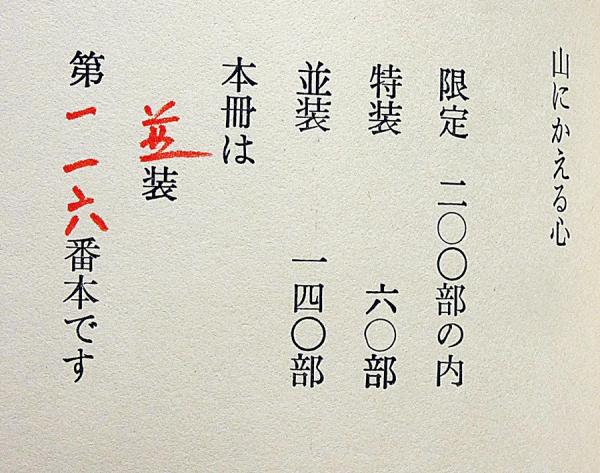 山にかえる心
限定 二〇〇部の内
特装 六〇部
並装 一四〇部
本冊は
並装
第一一六番本です